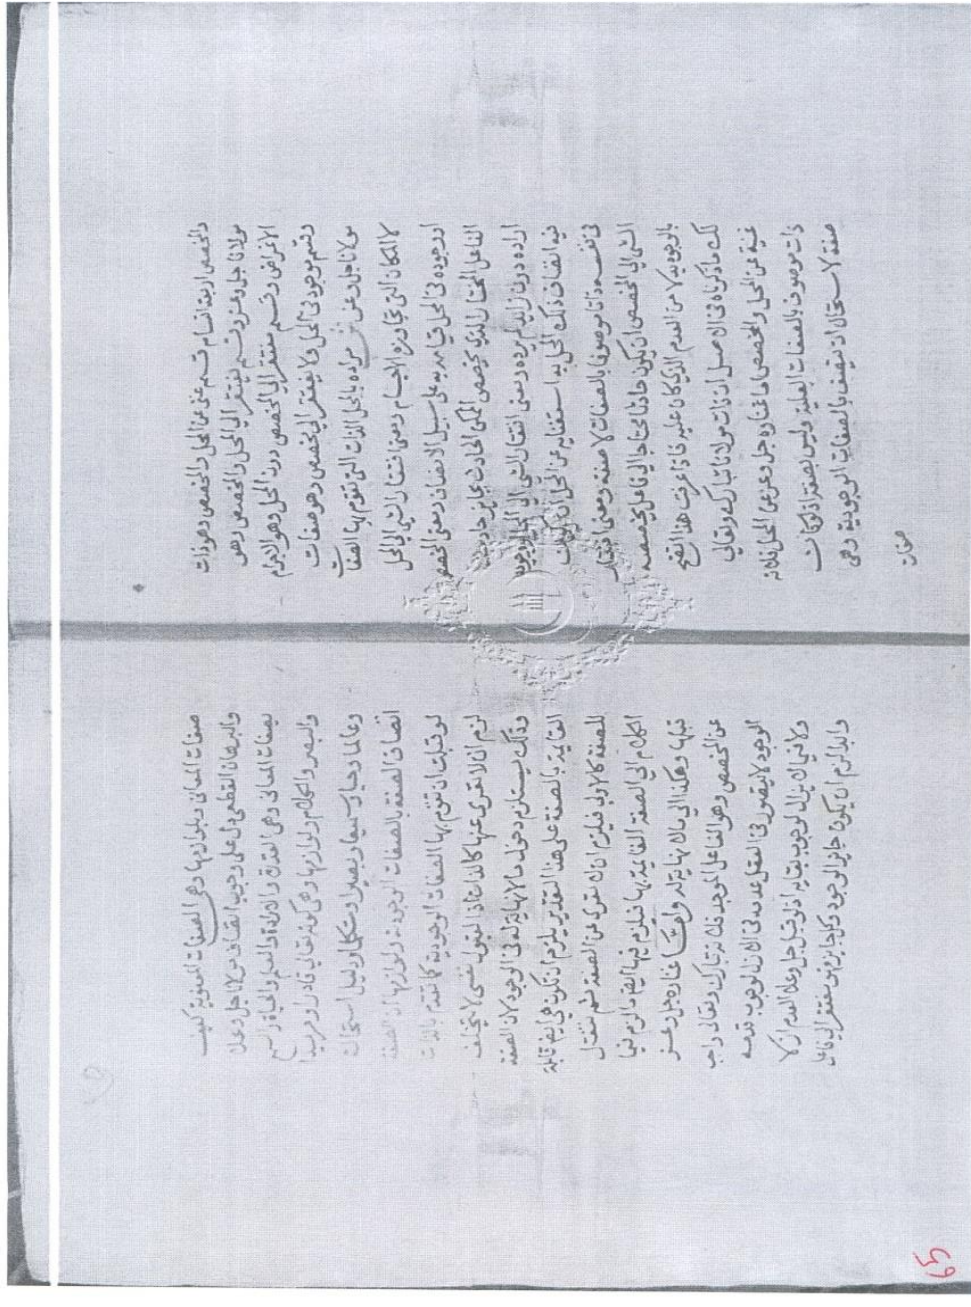 والمخصص اربعة اقسام قسم غني عن المحل والمخصص وهو ذات
مولانا جل وعز وقسم مفتقر الي المحل والمخصص وهو
الاعراض وقسم مفتقر الي المخصص دون المحل وهو الاجرام
وقسم موجود في المحل ولا يفتقر الي مخصص وهو صفات
مولانا جل وعز ش مراده بالمحل الذات التي تقوم بها الصفات
لا المكان التي تجاوره الاجسام ومعني افتقار الشي الي المحل
اي وجوده في المحل قيامه به علي سبيل الاتصاف ومعني المخصص
الفاعل المختار الذي يخصص الممكن الحادث بجايز
اراده دون زايد لم يرده ومعني افتقار الشي الي
فيه اتصاف ذلك المحل به استغنايه عن المحل ان يكون
في نفسه ذاتا موصوفا بالصفات لا صفة ومعني افتقار
الشي الي المخصص ان يكون حادثا محتاجا الي فاعل يخصصه
بالوجود بدلا من العدم الذي كان عليه فاذا عرفت هذا اتضح
لك ما ذكرناه في الاصل ان ذات مولانا تبارك وتعالي
غنية عن المحل والمخصص اما غناؤه جل وعز عن المحل فلانه
ذات موصوف بالصفات العلية وليس بصفة اذ لو كانت
صفة لاستحال ان يتصف بالصفات الوجودية وهي
صفات
صفات المعاني وبلوازمها وهي الصفات المعنوية كيف
والبرهان القطعي دل علي وجوب اتصاف مولانا جل وعلا
بصفات المعاني وهي القدرة والارادة والعلم والحياة والسمع
والبصر والكلام ولوازمها وهي كونه تعالي قادرا ومريدا
وعالما وحيا وسميعا وبصيرا ومتكلما ودليل استحالة
اتصاف الصفة بالصفات الوجودية ولوازمها ان الصفة
لو قبلت ان تقوم بها الصفات الوجودية كما تقوم بالذات
لزم ان لا تعري عنها كالذات اذ القبول نفسي لا يتخلف
وذلك يستلزم دخول ما لا نهاية له في الوجود لان الصفة
القايمة بالصفة علي هذا التقدير يلزم ان تكون هي ايضا قابلة
للصفة كالاولي فيلزم ان لا تعري عن الصفة ثم ننتقل
الكلام الي الصفة القايمة بها فيلزم فيها ايضا ما لزم فيما
قبلها وهكذا الي ما لا نهاية له واما غناه جل وعز
عن المخصص وهو الفاعل الموجد فلانه تبارك وتعالي واجب
الوجود لا يتصور في العقل عدمه في الازل لوجوب قدمه
ولا فيما لا يزال لوجوب بقايه اذ لو قبل جل وعلا العدم ازلا
وابدا لزم ان يكون جايز الوجود وكل جايز فهو مفتقر الي فاعل
65